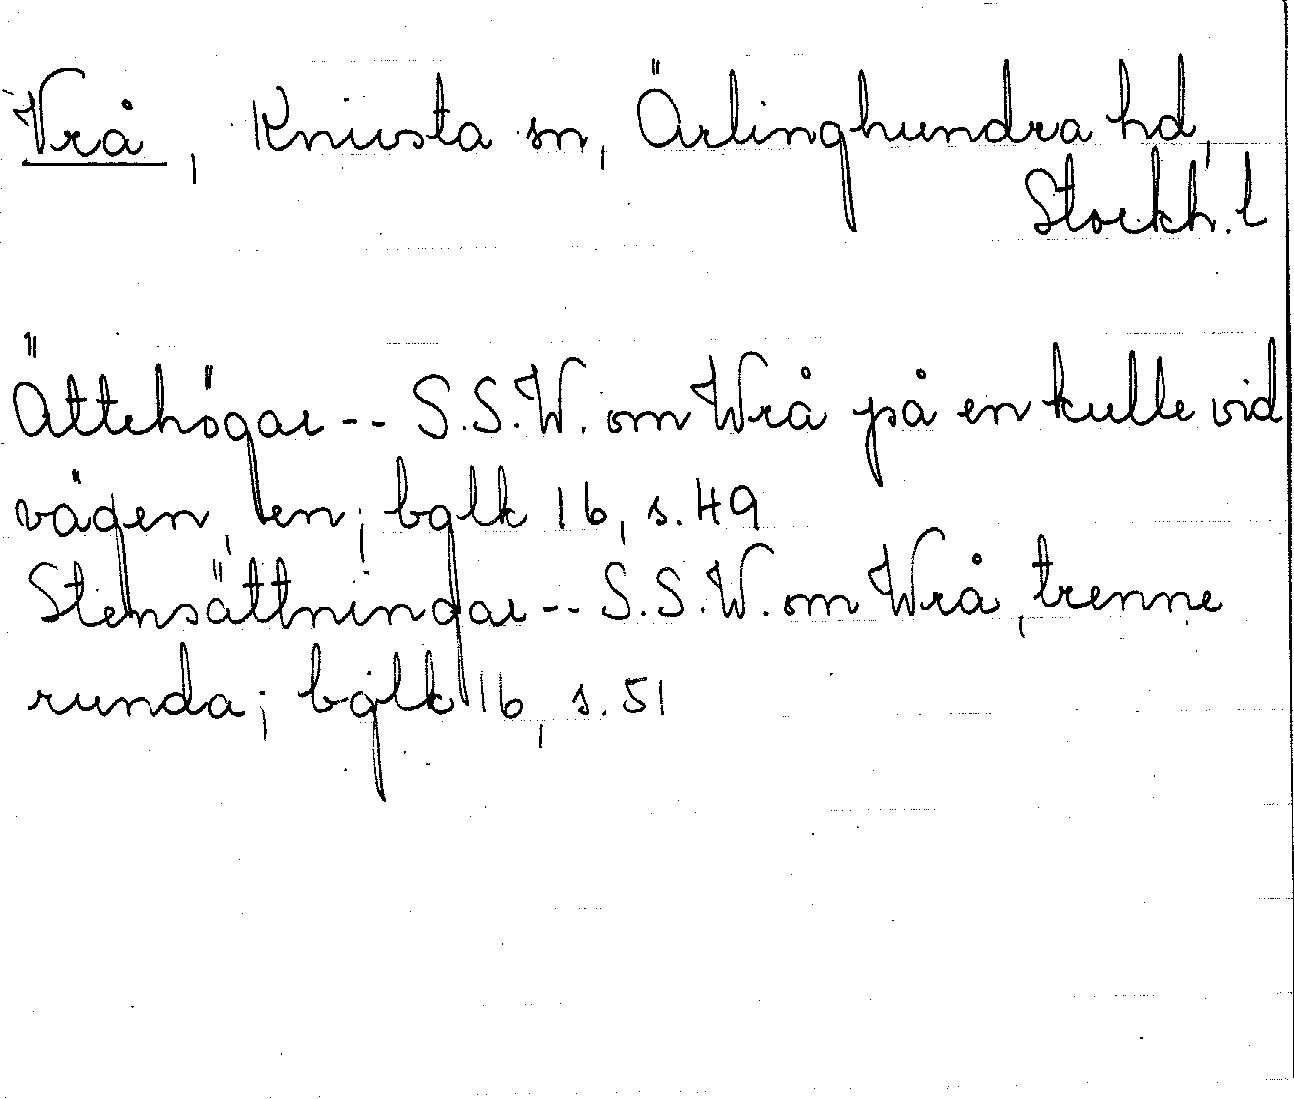 Vrå, Knivsta sn, Ärlinghundra hd,
Stockh. l
Ättehögar -- S.S.W. om Wrå på en kulle vid
vägen, en; bglk 16, s. 49
Stensättningar -- S.S.W. om Wrå, trenne
runda; bglk 16, s. 51